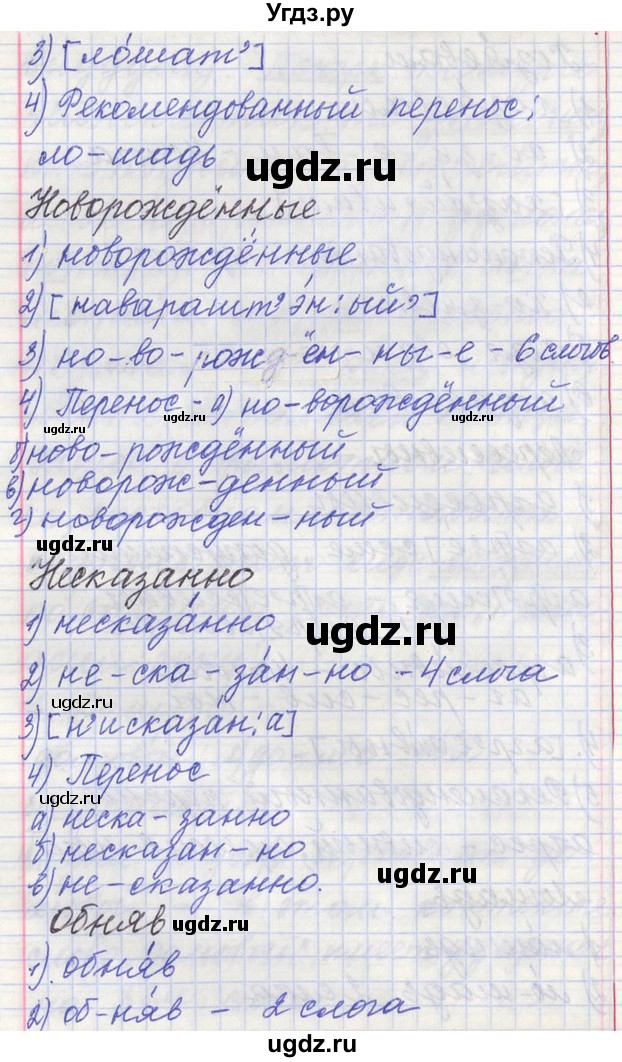 Угдз.ру
3) [ло́шат’]
4) Рекомендованный перенос:
ло-шадь
ugdz.ru
Новорождённые
ugdz.ru
1) новорождённые
2) [наварашт’э́н:ый’]
3) но-во-рожд ён-ны-е - 6 слогов
4) Перенос - а) но-ворождённый
ugdz.ru
б) ново-рождённый
ugdz.ru
в) новорож-денный
г) новорожден-ный
ugdz.ru
Несказанно
1) несказа́нно
ugdz.ru
2) не-ска-за́н-но - 4 слога
ugdz.ru
3) [н’исказа́н:а]
4) Перенос
ugdz.ru
а) неска-занно
б) несказан-но
ugdz.ru
в) не-сказанно.
Обняв
ugdz.ru
1). обня́в
2) об-ня́в - 2 слога
ugdz.ru